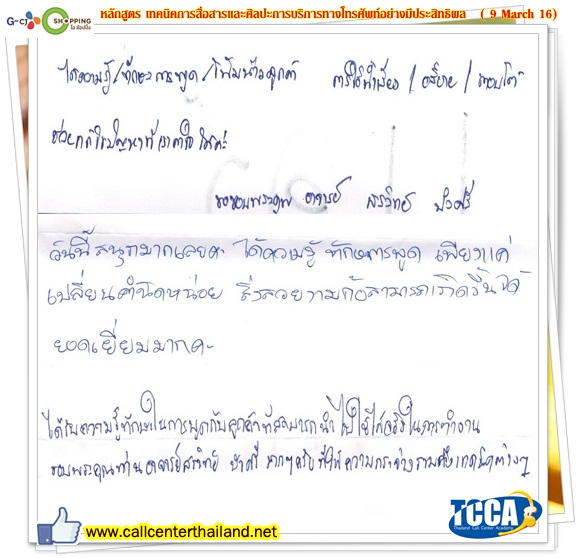 G-CJ O SHOPPING โอ ช้อปปิ้ง
หลักสูตร เทคนิคการสื่อสารและศิลปะการบริการทางโทรศัพท์อย่างมีประสิทธิผล ( 9 March 16)
ได้ความรู้/ทักษะการพูด/โน้มน้าวลูกค้า การใช้น้ำเสียง / อธิบาย / ตอบโต้
ช่วยแก้ไขปัญหาที่
ขอบพระคุณ อาจารย์ สรวิทย์
วันนี้สนุกมากเลยคะ ได้ความรู้ ทักษะการพูด เพียงแค่
เปลี่ยนคำนิดหน่อย สิ่งสวยงามก้อสามารถเกิดขึ้นได้
ยอดเยี่ยมมากคะ
ได้รับความรู้ทักษะในการพูดกับลูกค้าที่สามารถนำไปใช้ได้จริงในการทำงาน
ขอบพระคุณท่านอาจารย์สรวิทย์ มากๆครับที่ให้ความกระจ่าง เทคนิคต่างๆ
www.callcenterthailand.net
TCCA
Thailand Call Center Academy